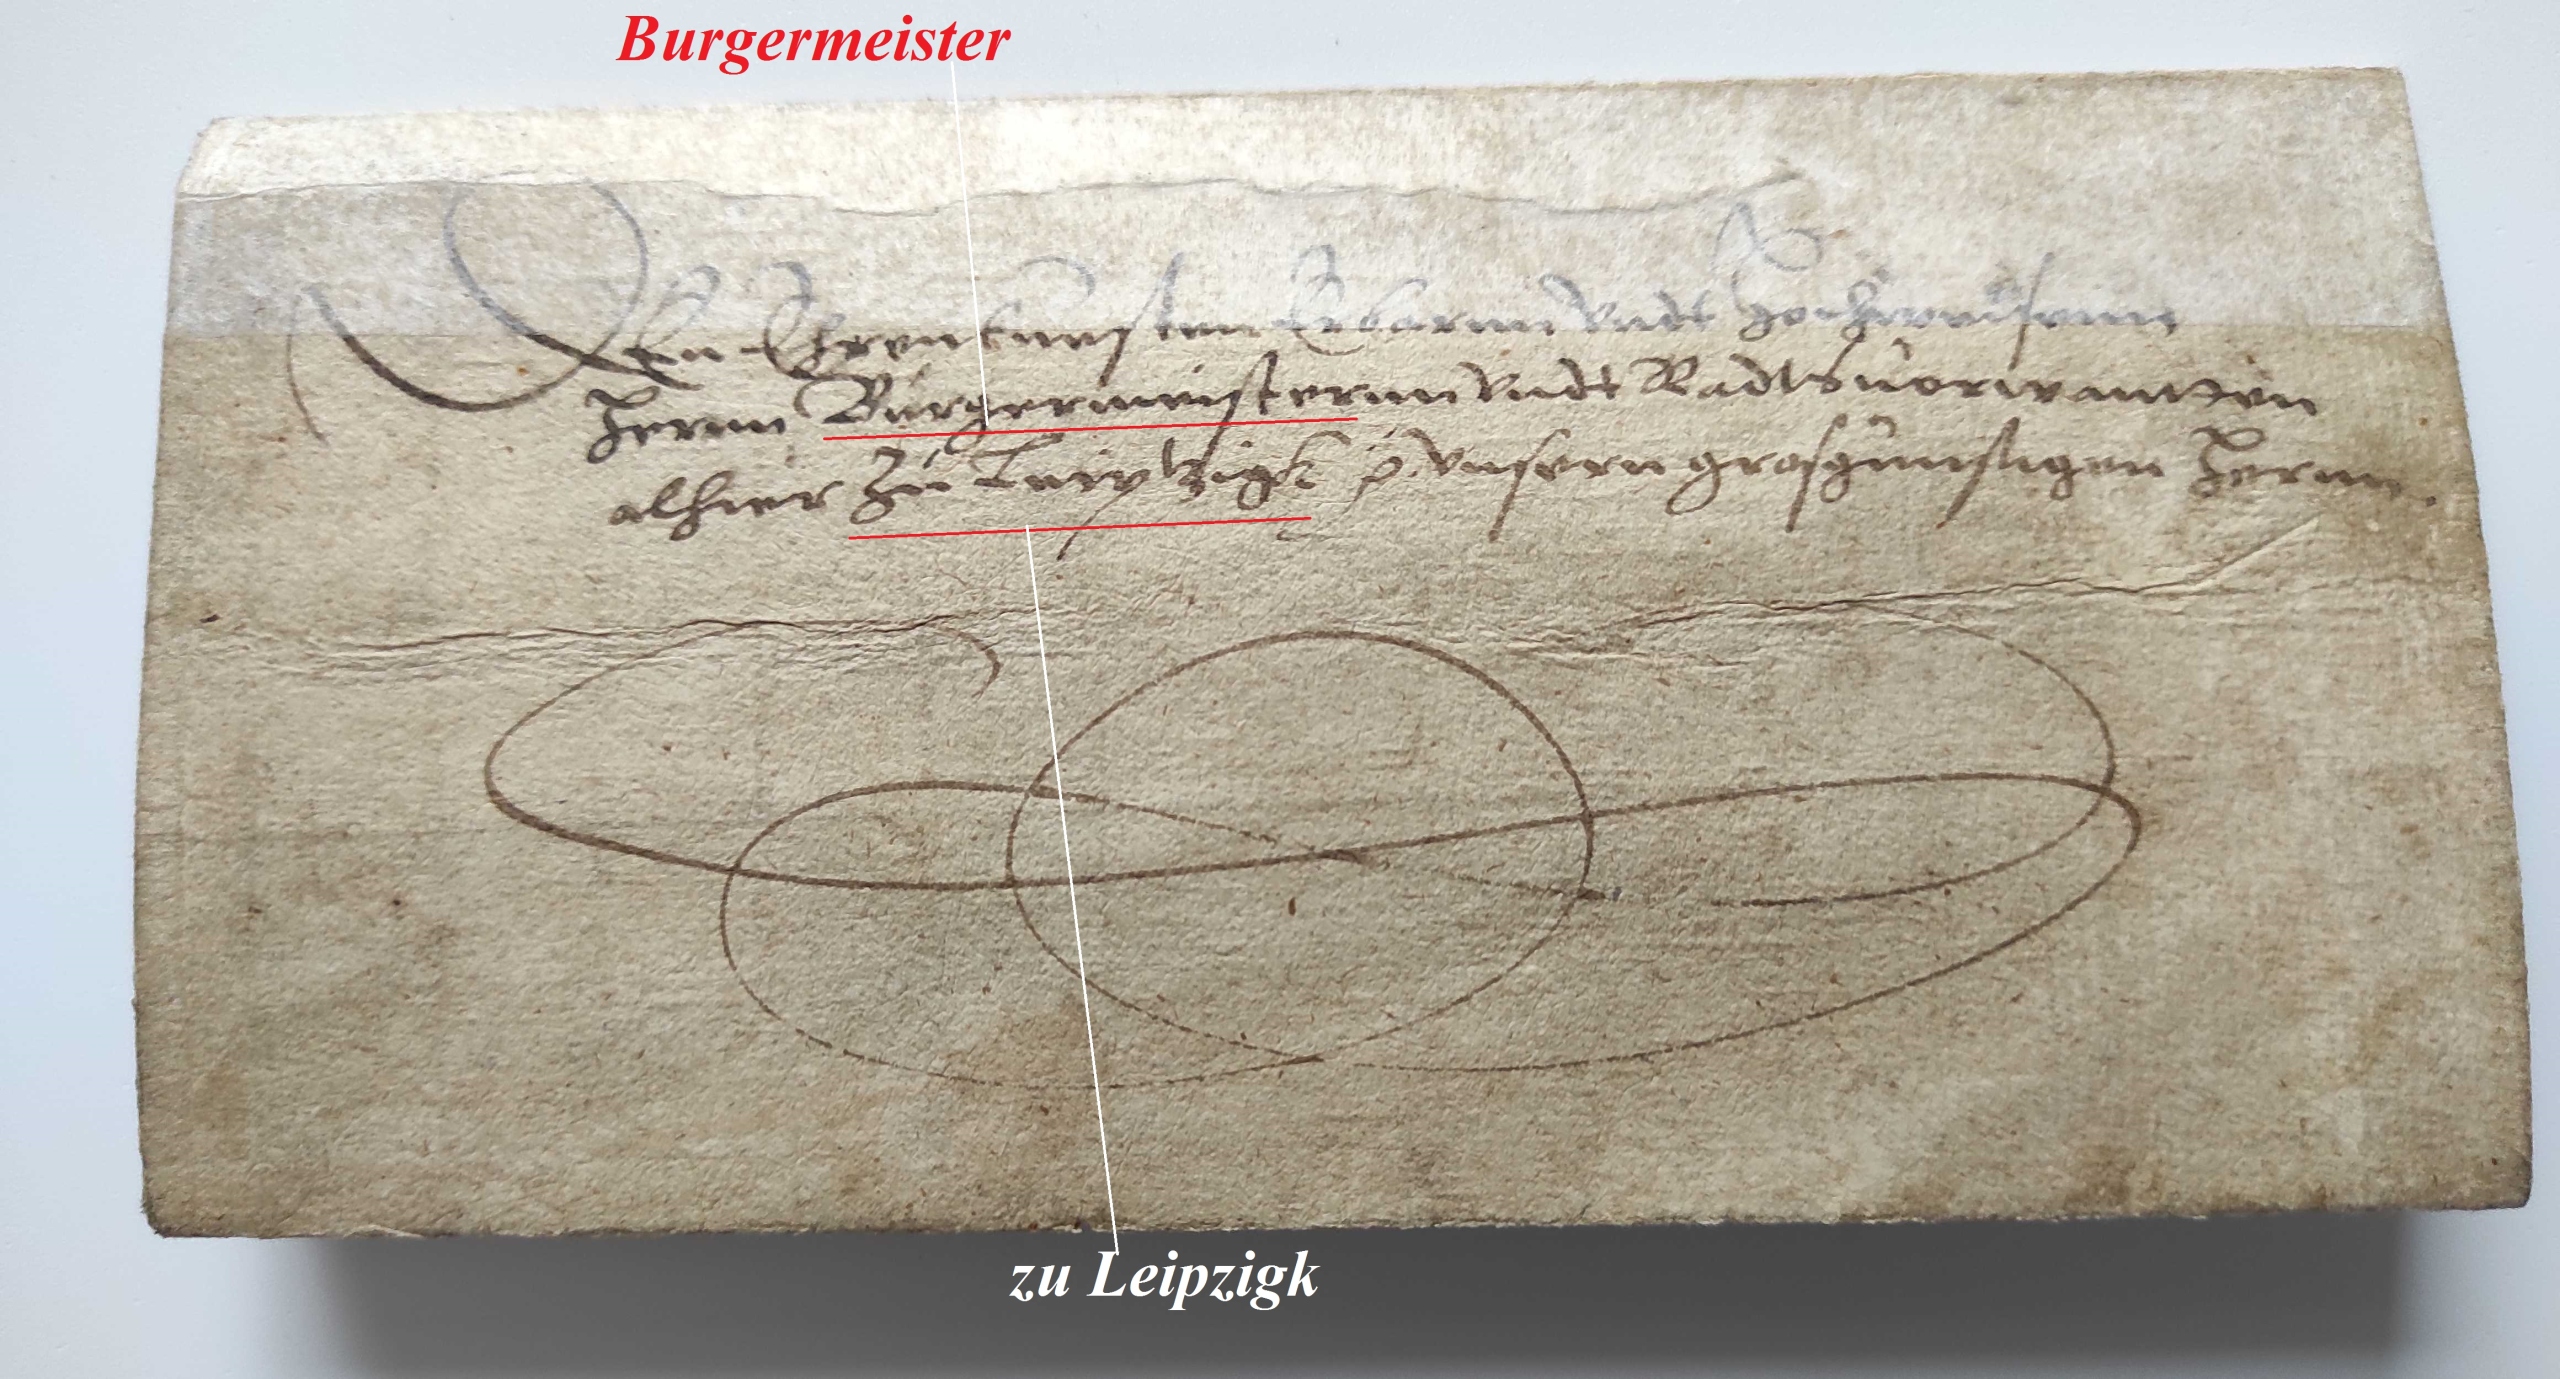 Burgermeister
Den Ehrenvhesten Erbarnn vndt Hochweisenn
Hernn Burgermeisternn vndt Radtsuorwantten
alhier zu Leiptzigk p. vnsern grosgunstigen Hernn.
zu Leipzigk